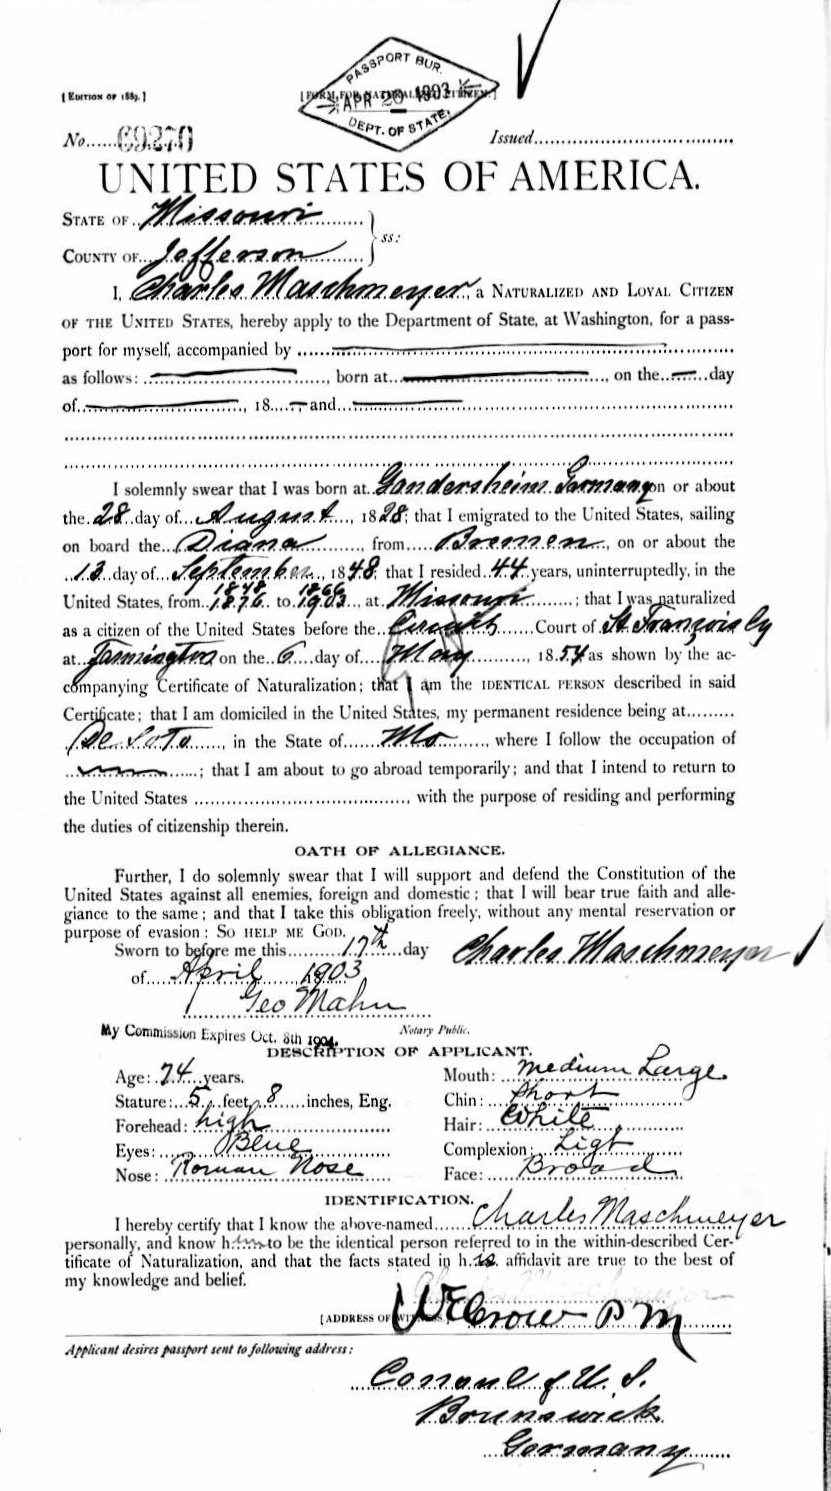 PASSPORT BUR.
APR 20 1903
DEPT. OF STATE.
[EDITION OF 1889.] [FORM FOR NATURALIZED CITIZEN.]
No. 69270 Issued
UNITED STATES OF AMERICA.
STATE OF Missouri
ss:
COUNTY OF Jefferson
I, Charles Maschmeyer, a NATURALIZED AND LOYAL CITIZEN
OF THE UNITED STATES, hereby apply to the Department of State, at Washington, for a pass-
port for myself, accompanied by
as follows: , born at , on the day
of , 18 and
I solemnly swear that I was born at Gandersheim Germany on or about
the 28 day of August, 1828; that I emigrated to the United States, sailing
on board the Diana, from Bremen, on or about the
13 day of September, 1848; that I resided 44 years, uninterruptedly, in the
1848 1866
United States, from 1876 to 1903, at Missouri; that I was naturalized
as a citizen of the United States before the Circuit Court of St Franzois Cy
at Farmington on the 6 day of May, 1854 as shown by the ac-
companying Certificate of Naturalization; that I am the IDENTICAL PERSON described in said
Certificate; that I am domiciled in the United States, my permanent residence being at
De Soto, in the State of Mo, where I follow the occupation of
; that I am about to go abroad temporarily; and that I intend to return to
the United States , with the purpose of residing and performing
the duties of citizenship therein.
OATH OF ALLEGIANCE.
Further, I do solemnly swear that I will support and defend the Constitution of the
United States against all enemies, foreign and domestic; that I will bear true faith and alle-
giance to the same; and that I take this obligation freely, without any mental reservation or
purpose of evasion: SO HELP ME GOD.
Sworn to before me this 17th day Charles Maschmeyer
of April 1903
Geo Mahn
Notary Public.
My Commission Expires Oct. 8th 1904.
DESCRIPTION OF APPLICANT.
Age: 74 years. Mouth: medium Large
Stature: 5 feet 8 inches, Eng. Chin: Short
Forehead: high Hair: White
Eyes: Blue Complexion: Ligt
Nose: Roman Nose Face: Broad
IDENTIFICATION.
I hereby certify that I know the above-named Charles Maschmeyer
personally, and know him to be the identical person referred to in the within-described Cer-
tificate of Naturalization, and that the facts stated in his affidavit are true to the best of
my knowledge and belief.
WE Crow PM
[ADDRESS OF WITNESS]
Applicant desires passport sent to following address:
Consul of U. S.
Brunswick
Germany